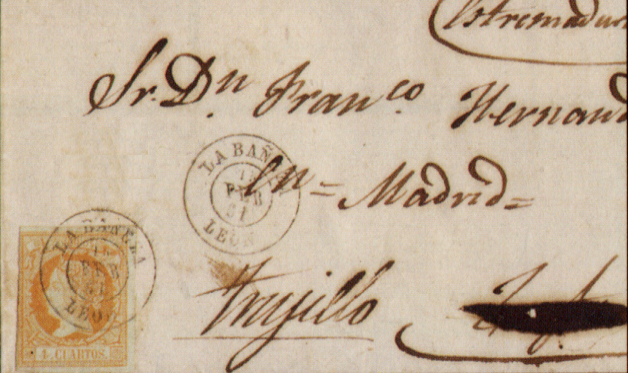 Estremadura
Sr. Dn Franco Hernand
LA BAÑ
FEB
LEON
en = Madrid =
LA BAÑEZA
LEON
4 CUARTOS.
trujillo